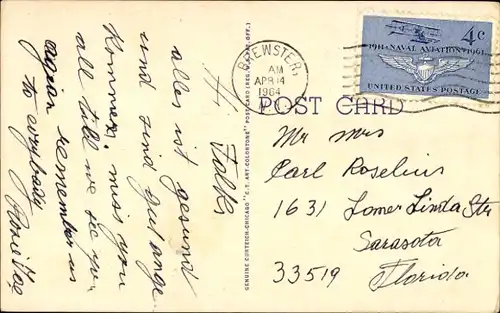 Hi Folks
alles ist gesund
und sind gut ange
Kommen, miss you
all till we see you
again remember us
to everybody
BREWSTER,
AM
APR 14
1964
4c
1911 NAVAL AVIATION 1961
UNITED STATES POSTAGE
POST CARD
GENUINE CURTEICH-CHICAGO "C.T. ART-COLORTONE" POST CARD (REG. U.S. PAT. OFF.)
Mr Mrs
Carl Roselius
1631 Loma Linda Str
Sarasota
33519 Florida